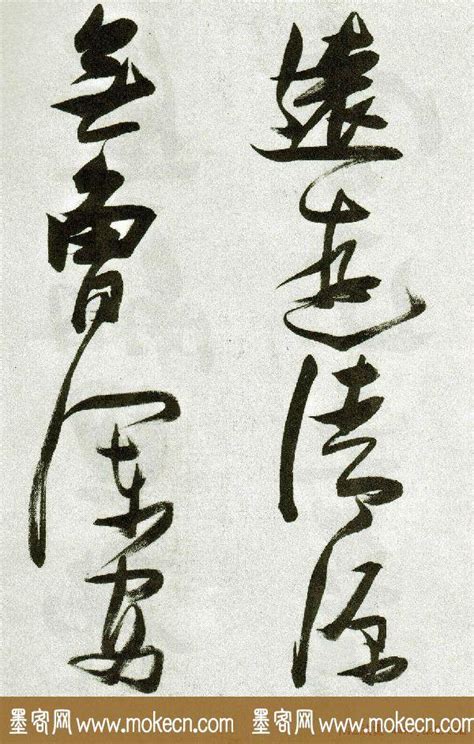 遠遊清源
無曹
墨客网 www.mokecn.com 墨客网 www.mokecn.com